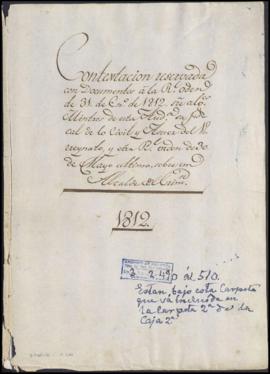 Contextacion reservada
con Documentos à la Rl. orden
de 31 de En.o de 1812. sre. alg.s
Mintros de esta Aud.a
cal de lo Civil y Asesor del Vi
reynato, y otra Rl. orden de 30
de Mayo ultimo, sobre
Alcalde del Crim.n
1812.
2-2-490 al 510.
Estan bajo esta Carpeta
que va incluida en
la Carpeta 2ª de la
Caja 2ª